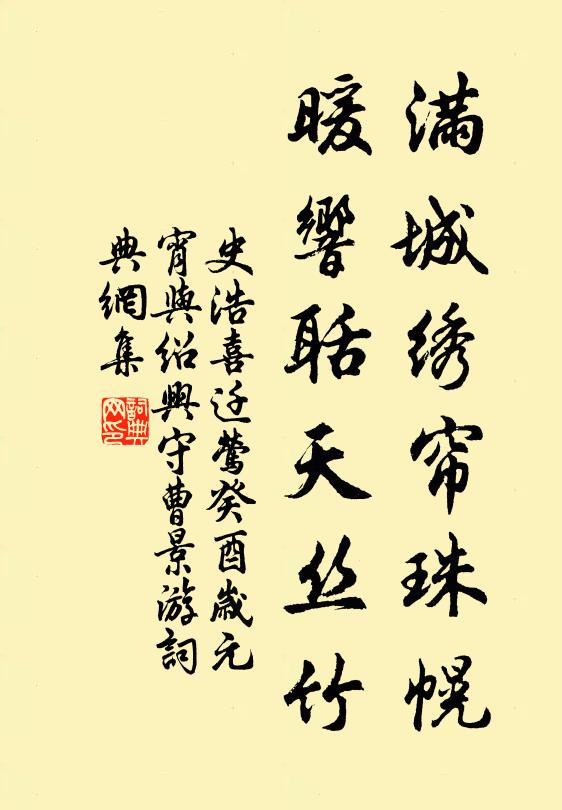 满城绣帘珠幌
暖響聒天丝竹
史浩喜迁鶯癸酉歲元
宵與紹興守曹景游詞
典網集
詞典
网印